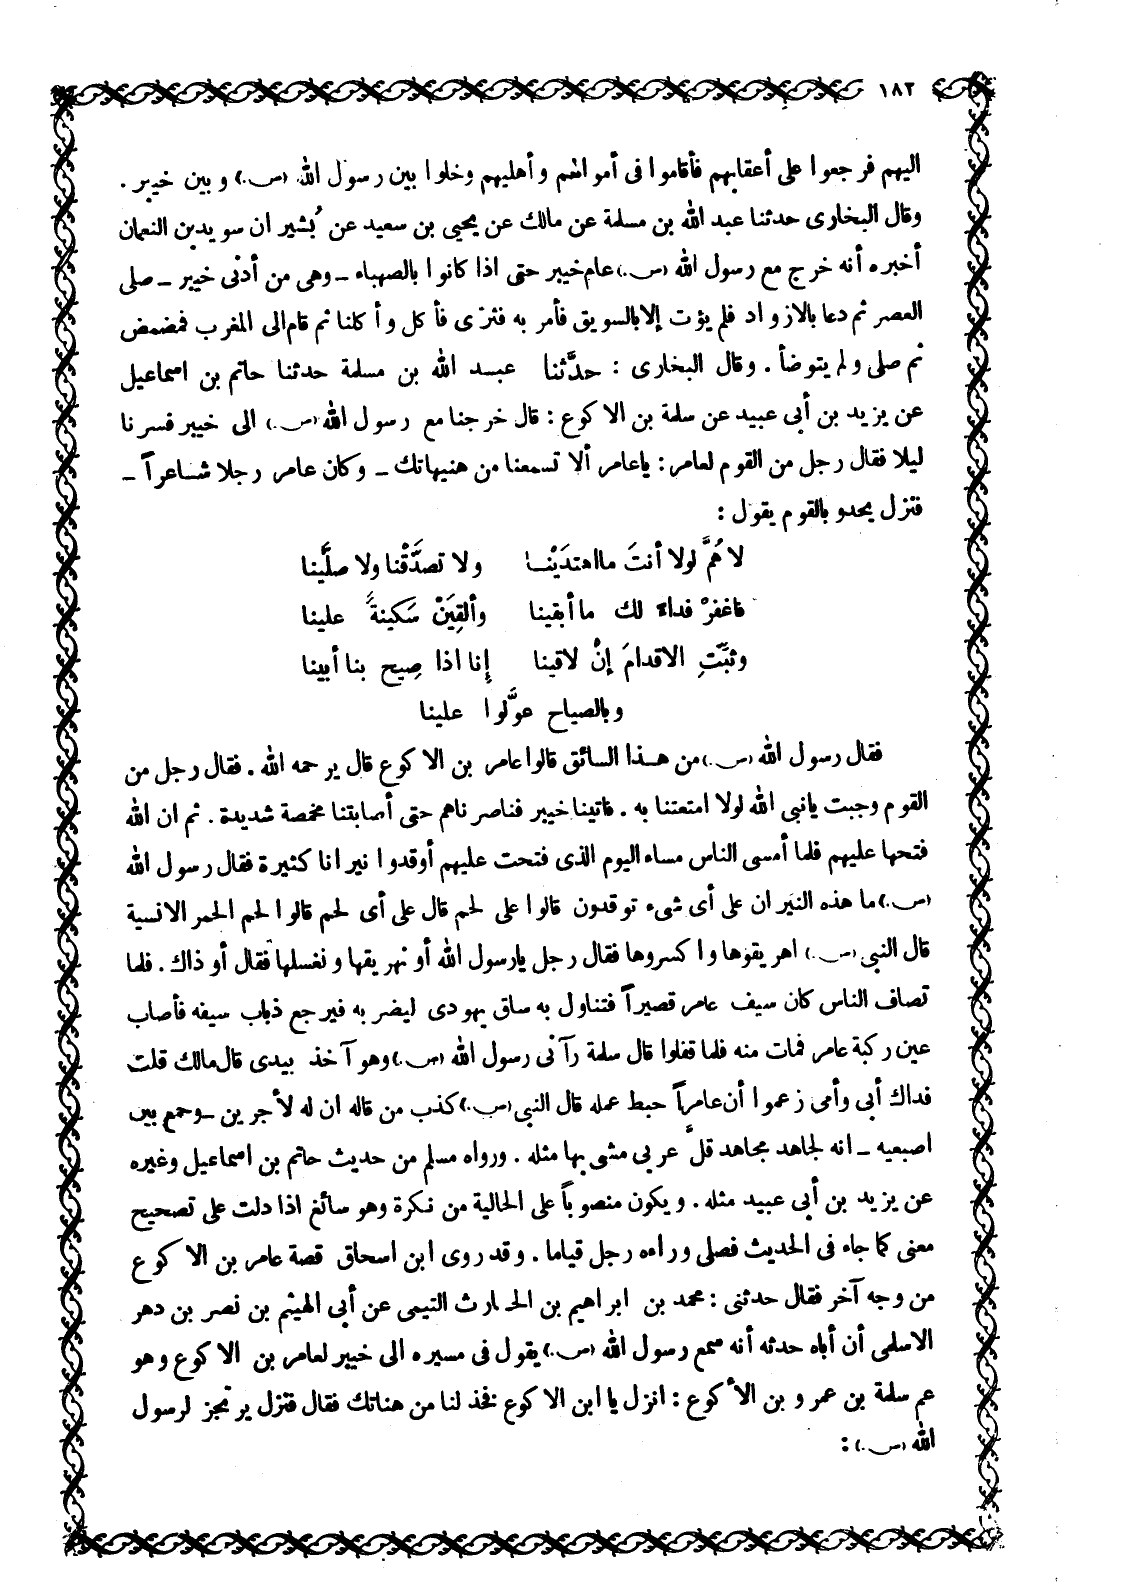 ١٨٢
اليهم فرجعوا على أعقابهم فأقاموا فى أموالهم وأهليهم وخلوا بين رسول الله (ص.) وبين خيبر .
وقال البخارى حدثنا عبد الله بن مسلمة عن مالك عن يحيى بن سعيد عن بُشير ان سويد بن النعمان
أخبره أنه خرج مع رسول الله (ص.) عام خيبر حتى اذا كانوا بالصهباء ــ وهى من أدنى خيبر ــ صلى
العصر ثم دعا بالازواد فلم يؤت إلا بالسويق فأمر به فثرى فأكل وأكلنا ثم قام الى المغرب فمضمض
ثم صلى ولم يتوضأ . وقال البخارى : حدَّثنا عبد الله بن مسلمة حدثنا حاتم بن اسماعيل
عن يزيد بن أبى عبيد عن سلمة بن الاكوع : قال خرجنا مع رسول الله (ص.) الى خيبر فسرنا
ليلا فقال رجل من القوم لعامر : ياعامر ألا تسمعنا من هنيهاتك ــ وكان عامر رجلا شاعراً ــ
فنزل يحدو بالقوم يقول :
لاهُمَّ لولا أنتَ ما اهتدَيْنا ولا تصدَّقْنا ولا صلَّينا
فاغفرْ فداءً لك ما أبقينا وألقِيَنْ سَكينةً علينا
وثبِّتِ الاقدامَ إنْ لاقينا إنا اذا صِيح بنا أبينا
وبالصياح عوَّلوا علينا
فقال رسول الله (ص.) من هذا السائق قالوا عامر بن الاكوع قال يرحمه الله . فقال رجل من
القوم وجبت يانبى الله لولا امتعتنا به . فاتينا خيبر فحاصرناهم حتى أصابتنا مخمصة شديدة . ثم ان الله
فتحها عليهم فلما أمسى الناس مساء اليوم الذى فتحت عليهم أوقدوا نيرانا كثيرة فقال رسول الله
(ص.) ما هذه النيران على أى شىء توقدون قالوا على لحم قال على أى لحم قالوا لحم الحمر الانسية
قال النبى (ص.) اهريقوها واكسروها فقال رجل يارسول الله أو نهريقها ونغسلها فقال أو ذاك . فلما
تصاف الناس كان سيف عامر قصيراً فتناول به ساق يهودى ليضربه فيرجع ذباب سيفه فأصاب
عين ركبة عامر فمات منه فلما قفلوا قال سلمة رآنى رسول الله (ص.) وهو آخذ بيدى قال مالك قلت
فداك أبى وأمى زعموا أن عامراً حبط عمله قال النبى (ص.) كذب من قاله ان له لأجرين ــ وجمع بين
اصبعيه ــ انه لجاهد مجاهد قلَّ عربى مشى بها مثله . ورواه مسلم من حديث حاتم بن اسماعيل وغيره
عن يزيد بن أبى عبيد مثله . ويكون منصوباً على الحالية من نكرة وهو سائغ اذا دلت على تصحيح
معنى كما جاء فى الحديث فصلى وراءه رجل قياما . وقد روى ابن اسحاق قصة عامر بن الاكوع
من وجه آخر فقال حدثنى : محمد بن ابراهيم بن الحارث التيمى عن أبى الهيثم بن نصر بن دهر
الاسلمى أن أباه حدثه أنه سمع رسول الله (ص.) يقول فى مسيره الى خيبر لعامر بن الاكوع وهو
عم سلمة بن عمرو بن الأكوع : انزل يا ابن الاكوع فخذ لنا من هناتك فقال فنزل يرتجز لرسول
الله (ص.) :